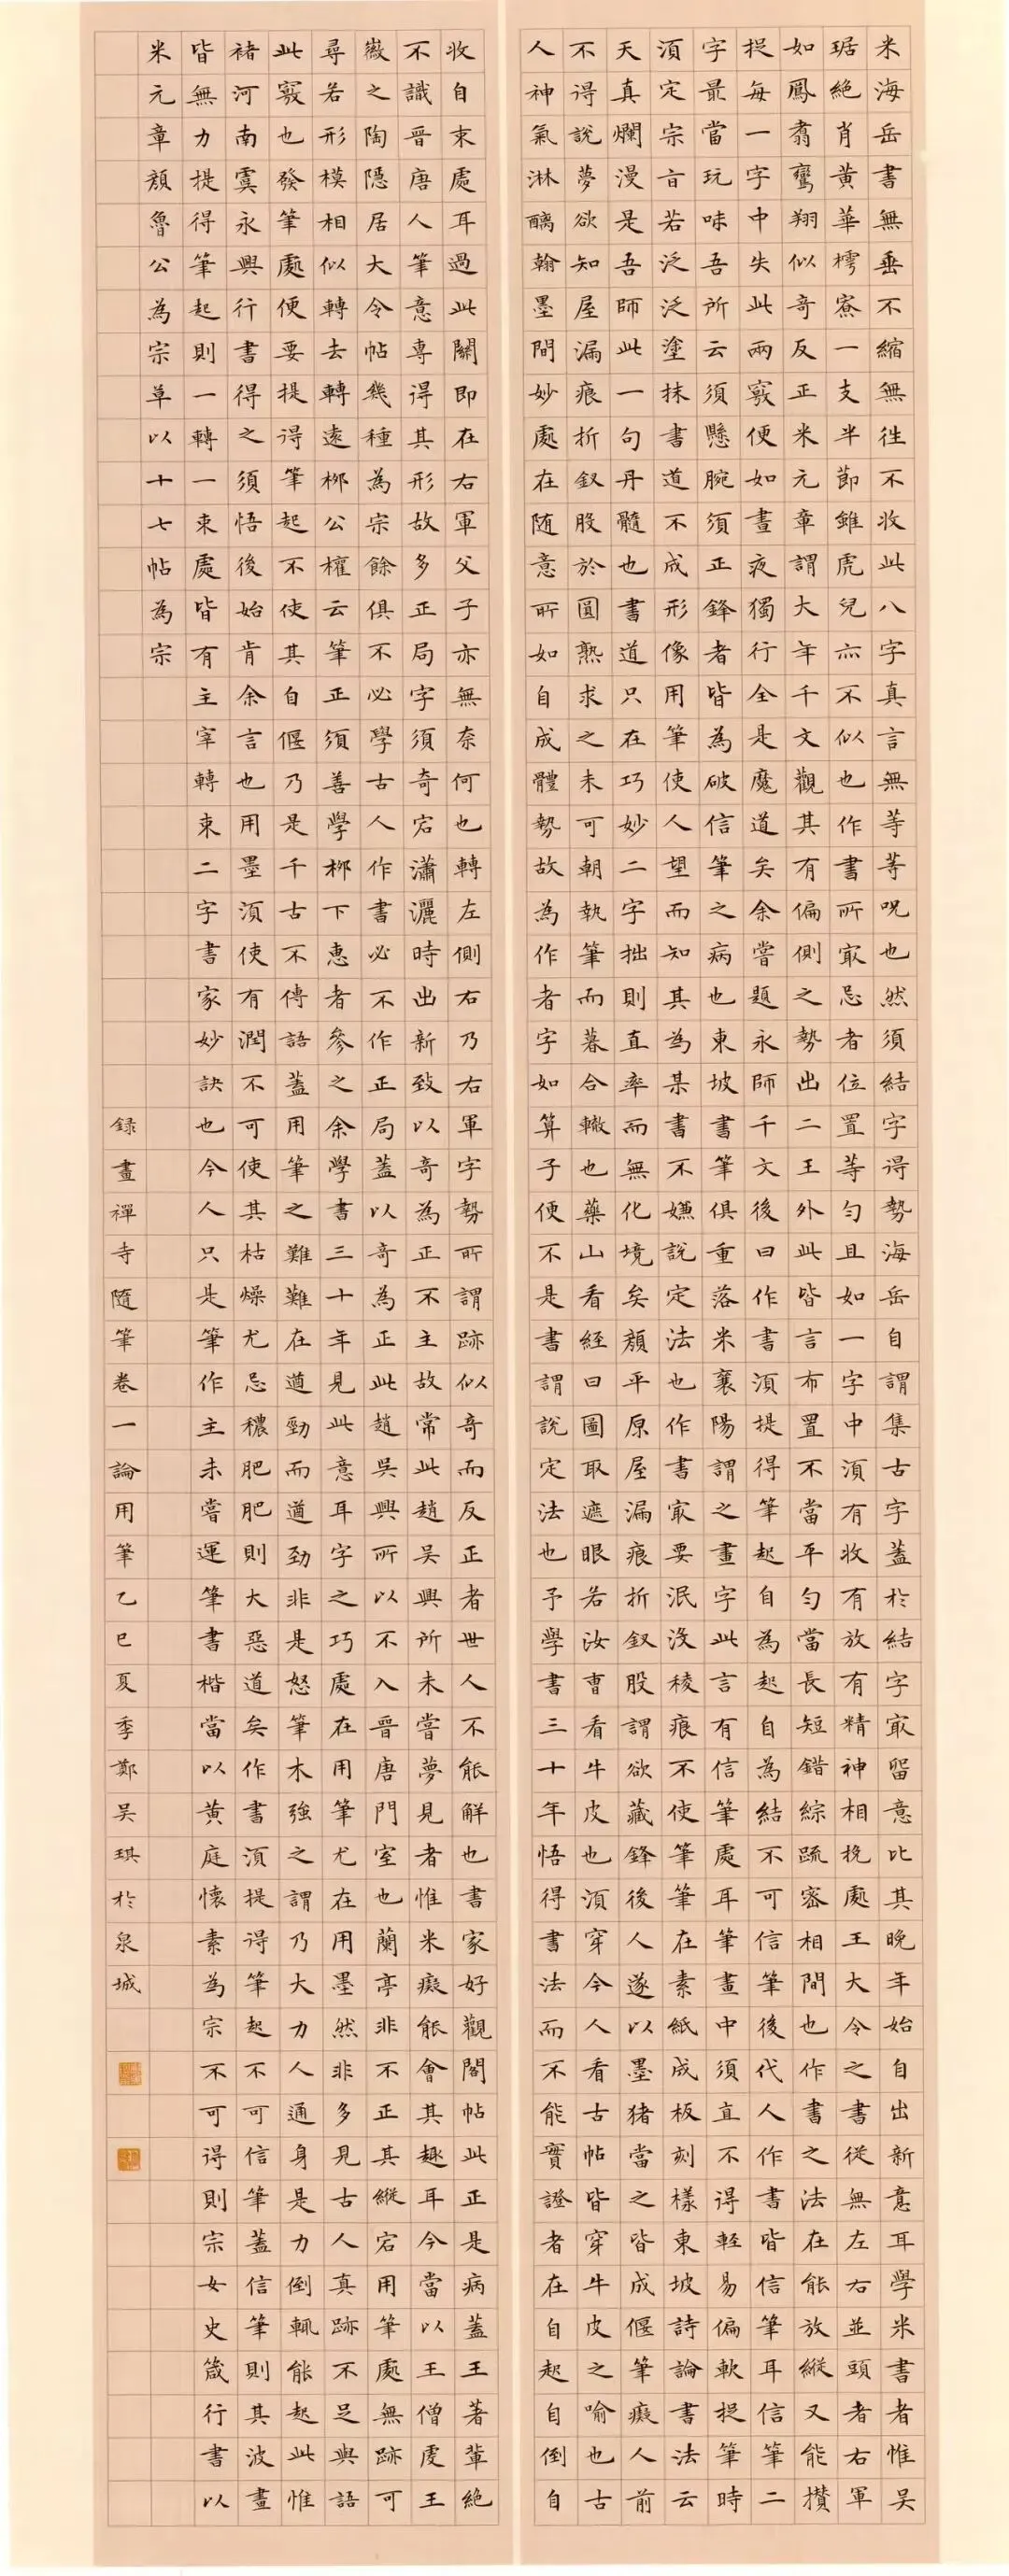 米海岳書無垂不縮無徃不收此八字真言無等等呪也然須結字得勢海岳自謂集古字蓋於結字㝡留意比其晚年始自出新意耳學米書者惟吳
琚絕肖黃華樗寮一支半節雖虎兒亦不似也作書所㝡忌者位置等勻且如一字中須有收有放有精神相挽處王大令之書從無左右並頭者右軍
如鳳翥鸞翔似奇反正米元章謂大年千文觀其有偏側之勢出二王外此皆言布置不當平勻當長短錯綜疏密相間也作書之法在能放縱又能攢
捉每一字中失此兩竅便如晝夜獨行全是魔道矣余嘗題永師千文後曰作書須提得筆起自為起自為結不可信筆後代人作書皆信筆耳信筆二
字最當玩味吾所云須懸腕須正鋒者皆為破信筆之病也東坡書筆俱重落米襄陽謂之畫字此言有信筆處耳筆畫中須直不得輕易偏軟捉筆時
須定宗旨若泛泛塗抹書道不成形像用筆使人望而知其為某書不嫌說定法也作書㝡要泯沒稜痕不使筆筆在素紙成板刻樣東坡詩論書法云
天真爛漫是吾師此一句丹髓也書道只在巧妙二字拙則直率而無化境矣顏平原屋漏痕折釵股謂欲藏鋒後人遂以墨猪當之皆成偃筆癡人前
不得說夢欲知屋漏痕折釵股於圓熟求之未可朝執筆而暮合轍也藥山看經曰圖取遮眼若汝曹看牛皮也須穿今人看古帖皆穿牛皮之喻也古
人神氣淋醨翰墨間妙處在随意所如自成體勢故為作者字如算子便不是書謂說定法也予學書三十年悟得書法而不能實證者在自起自倒自
收自束處耳過此關即在右軍父子亦無奈何也轉左側右乃右軍字勢所謂跡似奇而反正者世人不能解也書家好觀閣帖此正是病蓋王著輩絕
不識晉唐人筆意專得其形故多正局字須奇宕瀟灑時出新致以奇為正不主故常此趙吳興所未嘗夢見者惟米癡能會其趣耳今當以王僧虔王
徽之陶隱居大令帖幾種為宗餘俱不必學古人作書必不作正局蓋以奇為正此趙吳興所以不入晉唐門室也蘭亭非不正其縱宕用筆處無跡可
尋若形模相似轉去轉遠柳公權云筆正須善學柳下惠者參之余學書三十年見此意耳字之巧處在用筆尤在用墨然非多見古人真跡不足與語
此竅也發筆處便要提得筆起不使其自偃乃是千古不傳語蓋用筆之難難在遒勁而遒勁非是怒筆木強之謂乃大力人通身是力倒輒能起此惟
褚河南虞永興行書得之須悟後始肯余言也用墨須使有潤不可使其枯燥尤忌穠肥肥則大惡道矣作書須提得筆起不可信筆蓋信筆則其波畫
皆無力提得筆起則一轉一束處皆有主宰轉束二字書家妙訣也今人只是筆作主未嘗運筆書楷當以黃庭懷素為宗不可得則宗女史箴行書以
米元章顏魯公為宗草以十七帖為宗
録畫禪寺隨筆卷一論用筆乙巳夏季鄭吴琪於泉城